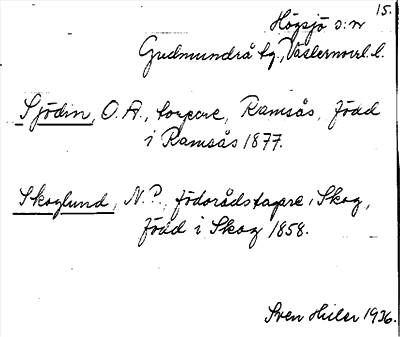 15.
Högsjö s:n
Gudmundrå tg., Västernorrl. l.
Sjödin, O. A., torpare, Ramsås, född
i Ramsås 1877.
Skoglund, N. P., födorådstagare i Skog,
född i Skog 1858.
Sven Huler 1936.